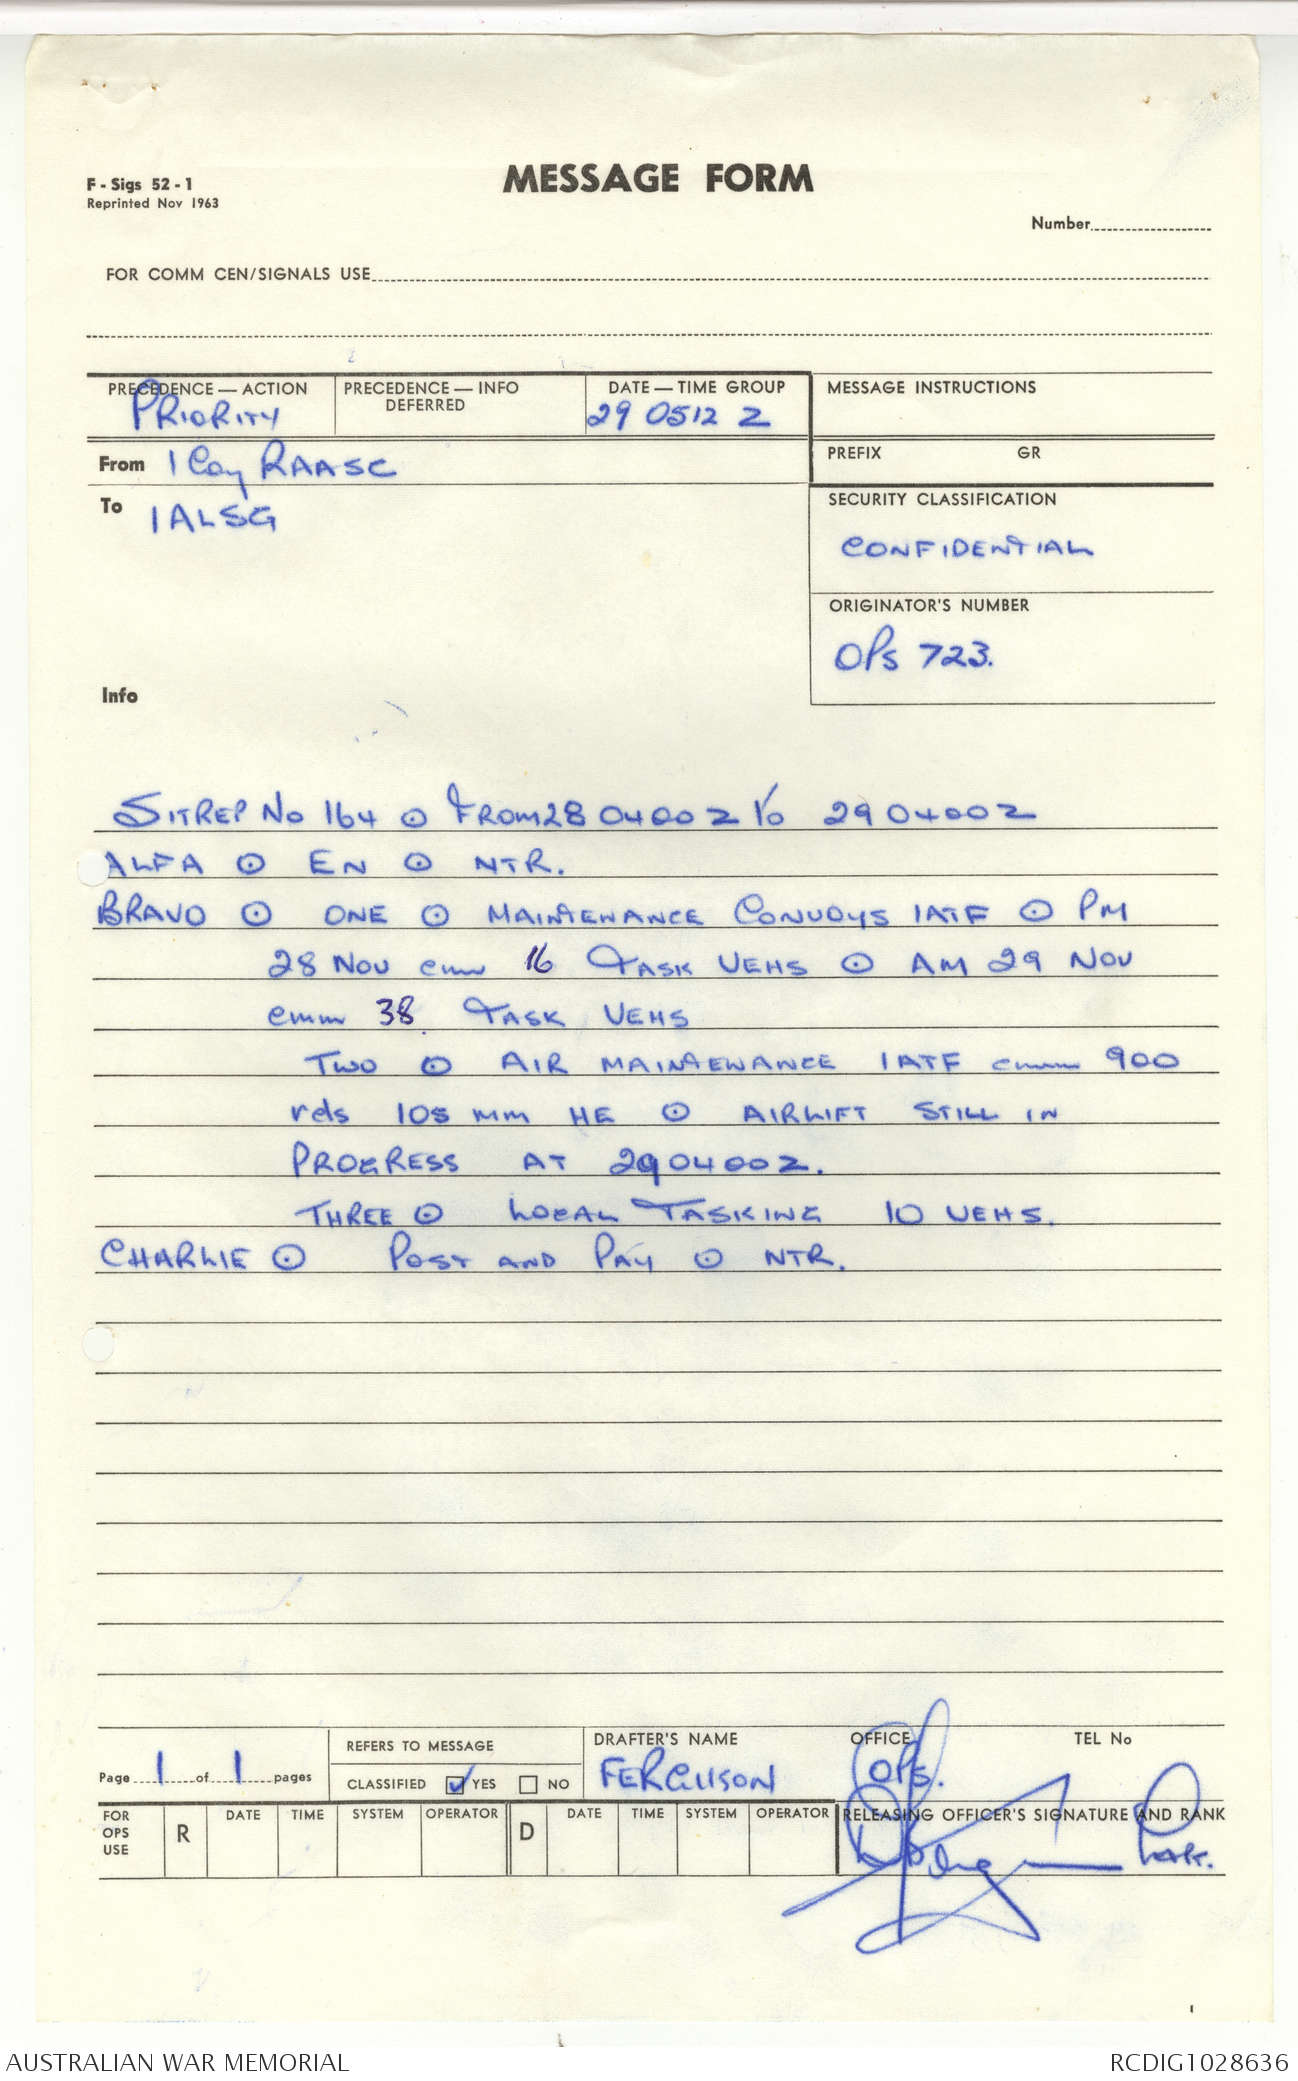 F - Sigs 52 - 1
Reprinted Nov 1963
MESSAGE FORM
Number
FOR COMM CEN/SIGNALS USE
PRECEDENCE — ACTION
PRIORITY
PRECEDENCE — INFO
DEFERRED
DATE — TIME GROUP
29 0512 Z
MESSAGE INSTRUCTIONS
From 1 Coy RAASC
PREFIX GR
To 1 ALSG
SECURITY CLASSIFICATION
CONFIDENTIAL
ORIGINATOR'S NUMBER
OPs 723.
Info
SITREP No 164 ⊙ FROM 28 0400Z to 29 0400Z
ALFA ⊙ EN ⊙ NTR.
BRAVO ⊙ ONE ⊙ MAINTENANCE CONVOYS 1ATF ⊙ PM
28 NOV cmm 16 TASK VEHS ⊙ AM 29 NOV
cmm 38 TASK VEHS
TWO ⊙ AIR MAINTENANCE 1ATF cmm 900
rds 105 MM HE ⊙ AIRLIFT STILL IN
PROGRESS AT 290400Z.
THREE ⊙ LOCAL TASKING 10 VEHS.
CHARLIE ⊙ POST AND PAY ⊙ NTR.
Page 1 of 1 pages
REFERS TO MESSAGE
CLASSIFIED ☑ YES ☐ NO
DRAFTER'S NAME
FERGUSON
OFFICE
OPs.
TEL No
FOR OPS USE R DATE TIME SYSTEM OPERATOR D DATE TIME SYSTEM OPERATOR
RELEASING OFFICER'S SIGNATURE AND RANK
Capt.
AUSTRALIAN WAR MEMORIAL
RCDIG1028636